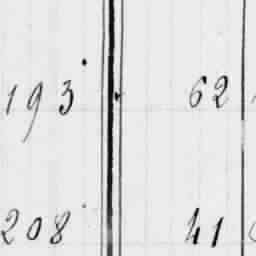 193 62
208 41